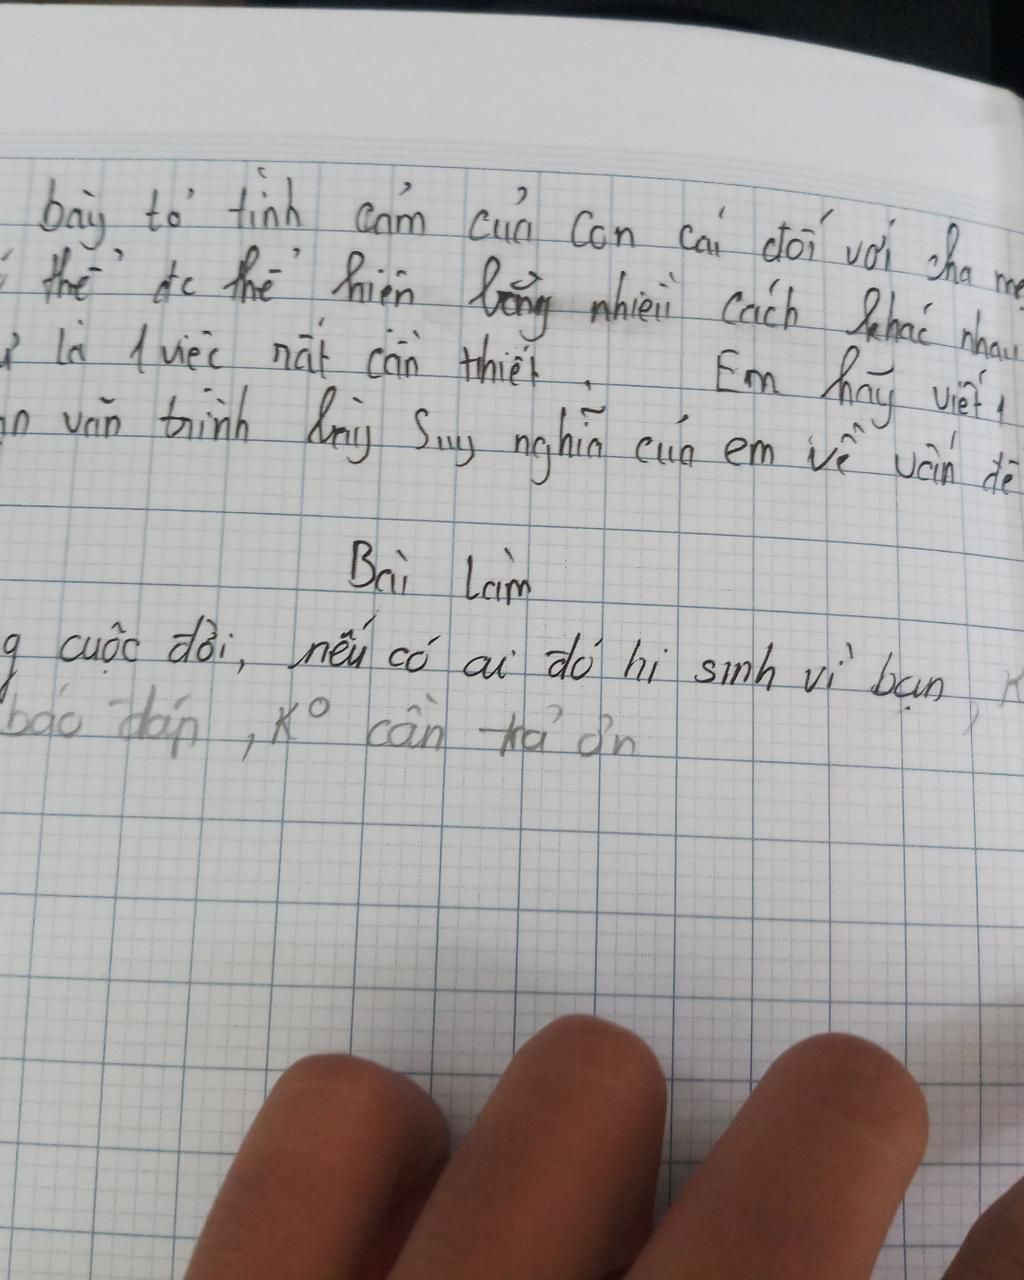 bày tỏ tình cảm của con cái đối với cha mẹ
thể đc thể hiện bằng nhiều cách khác nhau
là 1 việc rất cần thiết. Em hãy viết 1
văn trình bày suy nghĩ của em về vấn đề
Bài Làm
cuộc đời, nếu có ai đó hi sinh vì bạn, K
báo đáp, K° cần trả ơn